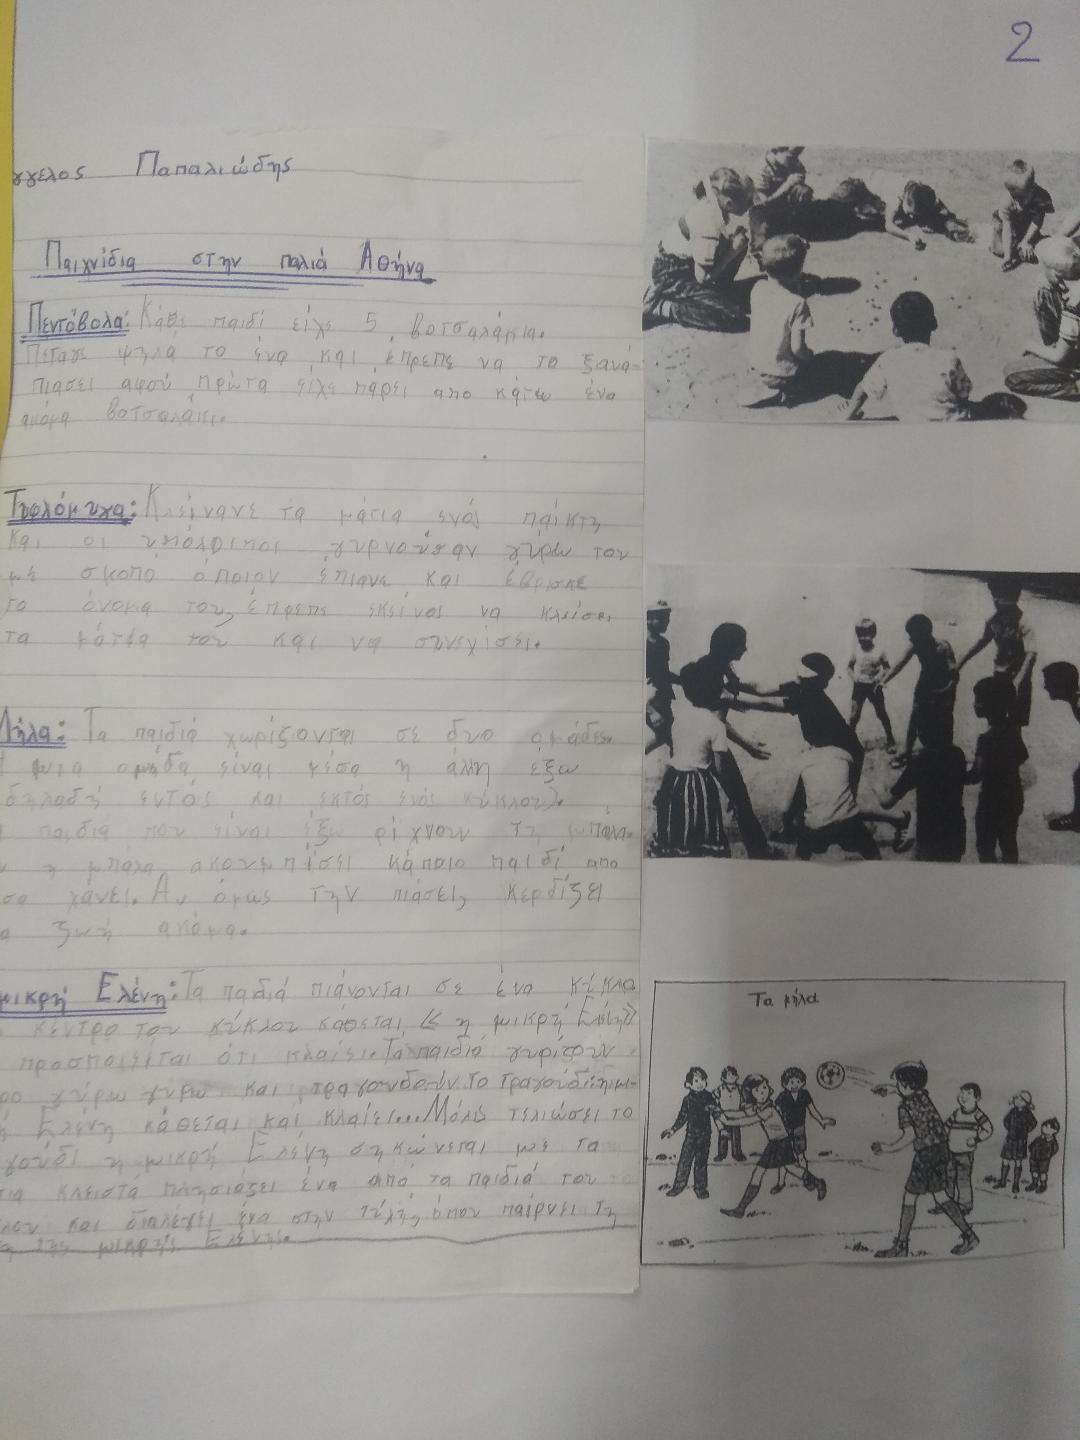 2
γγελος Παπαλιώδης
Παιχνίδια στην παλιά Αθήνα
Πεντόβολα: Κάθε παιδί είχε 5 βοτσαλάκια.
Πέταγε ψηλά το ένα και έπρεπε να το ξανά-
πιάσει αφού πρώτα είχε πάρει απο κάτω ένα
ακόμα βοτσαλάκι.
Τυφλόμυγα: Κλείνανε τα μάτια ενός παίκτη
και οι υπόλοιποι γυρνούσαν γύρω του
με σκοπό όποιον έπιανε και έβρισκε
το όνομα του, έπρεπε εκείνοι να κλείσει
τα μάτια του και να συνεχίσει.
Μήλα: Τα παιδιά χωρίζονται σε δυο ομάδες.
μια ομάδα είναι μέσα η άλλη έξω
δηλαδή εντός και εκτός ενός κύκλου).
παιδιά που είναι έξω ρίχνουν τη μπάλα.
ν η μπάλα ακουμπίσει κάποιο παιδί απο
σα χάνει. Αν όμως την πιάσει, κερδίζει
α ζωή ακόμα.
μικρή Ελένη: Τα παιδιά πιάνονται σε ένα κύκλο
κέντρο του κύκλου κάθεται << η μικρή Ελένη>>
προσποιείται ότι κλαίει. Τα παιδιά γυρίζουν
γύρω γύρω και τραγουδούν το τραγούδι: η μι-
ή Ελένη κάθεται και κλαίει... Μόλις τελιώσει το
γούδι η μικρή Ελένη σηκώνεται με τα
τια κλειστά πλησιάζει ένα από τα παιδιά του
λου και διαλέγει ένα στην τύχη όπου παίρνει τη
της μικρής Ελένης.
Τα μήλα